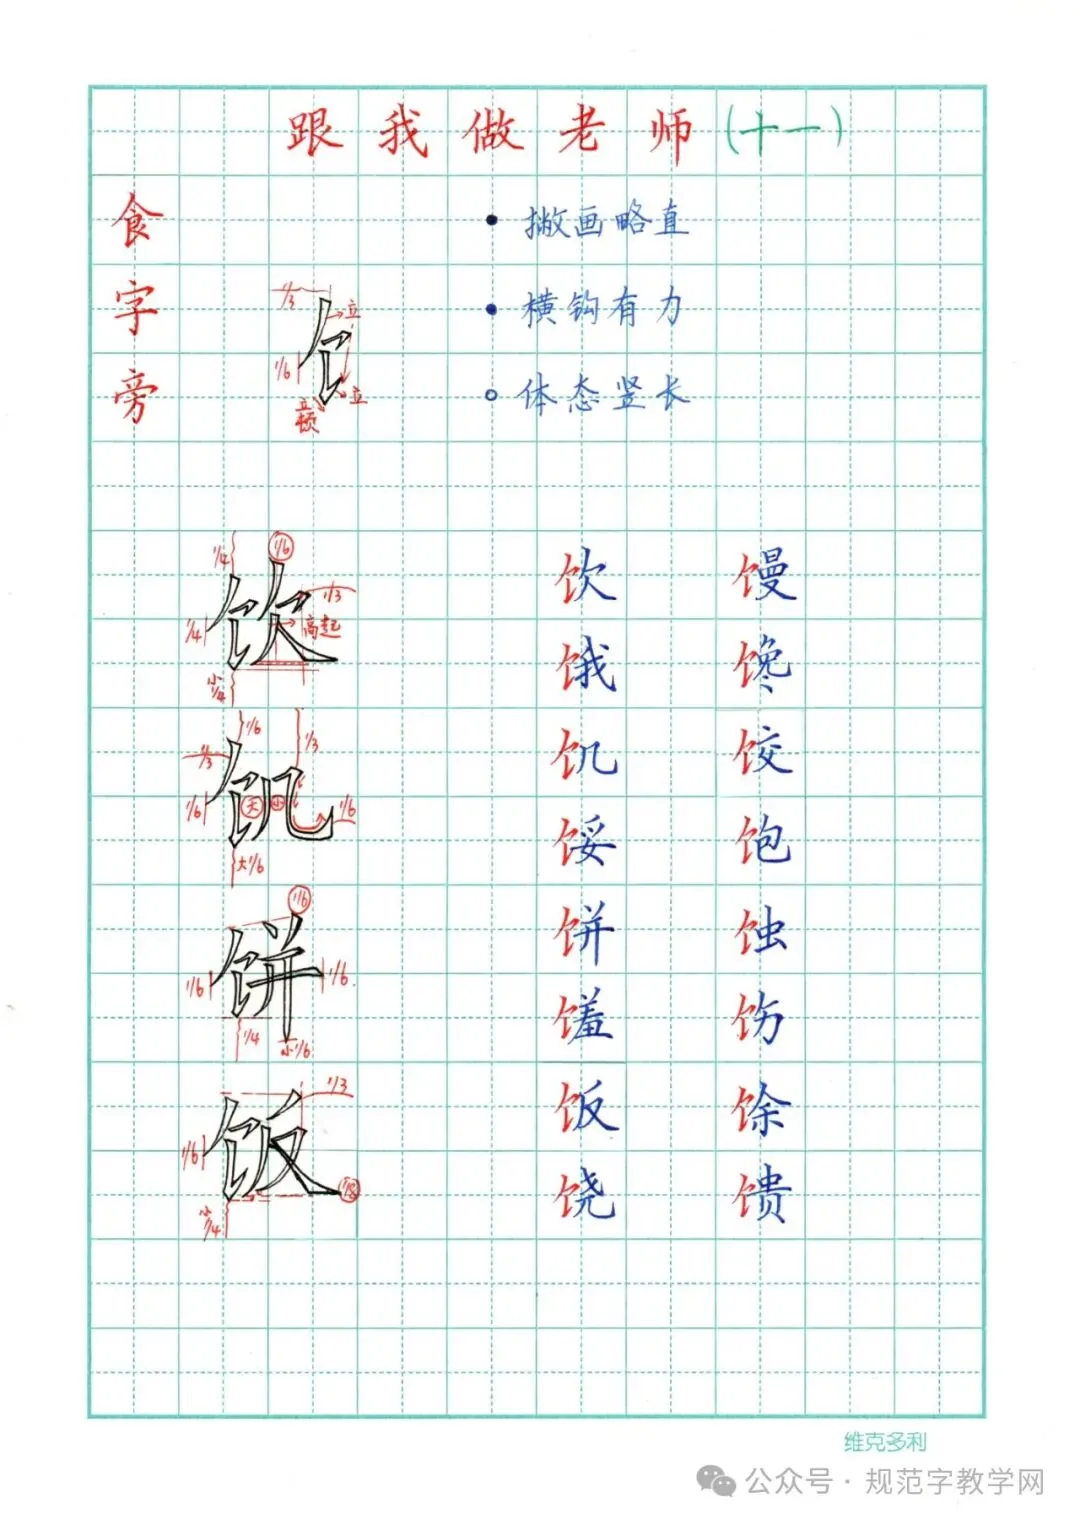 跟我做老师（十一）
食字旁
• 撇画略直
• 横钩有力
◦ 体态竖长
1/3
立
1/6
立
饣
1/4 1/6
饮
1/3
高起
1/4
小1/4
饮 馒
饿 馋
1/6 1/3
1/3
饥
1/6 大 小 1/6
大1/6
饥 饺
馁 饱
1/6
饼
1/6 1/6
1/4 小1/6
饼 蚀
馐 饬
1/3
饭
1/6
小1/4
饭 馀
饶 馈
维克多利
公众号·规范字教学网